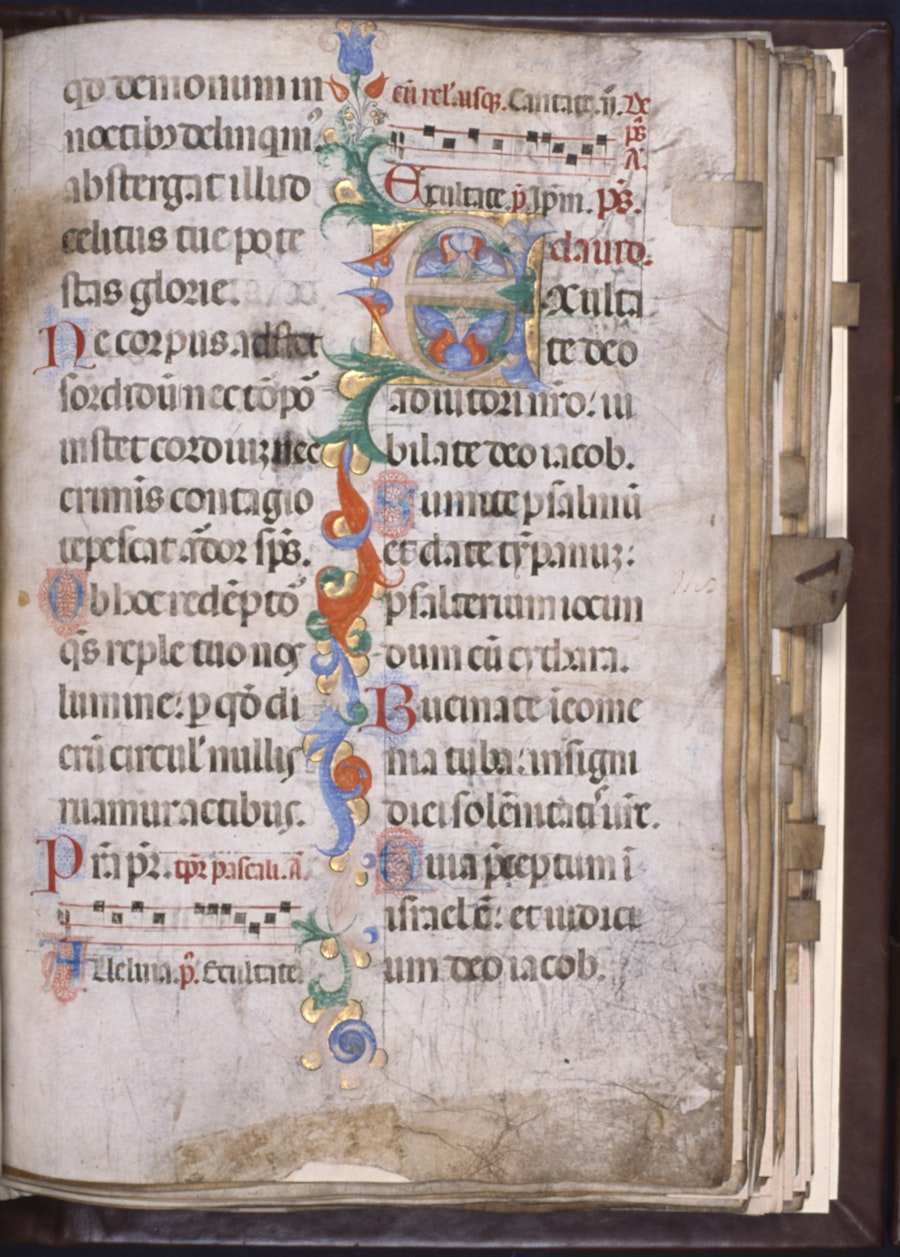 qď demonum in
noctib9 delinquiť
abstergat illud
celitus tue pote
stas glorie.
Ne corpus adsit
sordidū nec tōpō
instet cordiuȝ nec
crimīs contagio
tepescat ādor sps.
Ob hoc redēptō
qs reple tuo nos
lumine: p qd di
erū circul' nullis
ruamur actibus.
Pria pr. tpr pascali. A.
Alleluia. p. Exultate.
cū rel'. usq. Cantate. ij. De
ps
A.
Exultate. p. Ipm. ps.
dauid.
Exulta
te deo
adiutori nro: iu
bilate deo iacob.
Sumite psalmū
et date tȳpanuȝ:
psalterium iocun
dum cū cythara.
Bucinate ī eome
nia tuba: insigni
die solēnitatis ure.
Quia preceptum ī
israel ē: et iudici
um deo iacob.